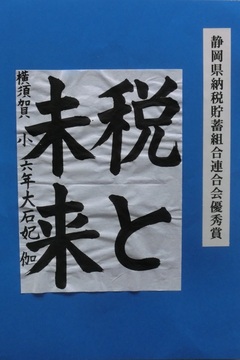 静岡県納税貯蓄組合連合会優秀賞
税と
未来
横須賀小 六年大石妃伽